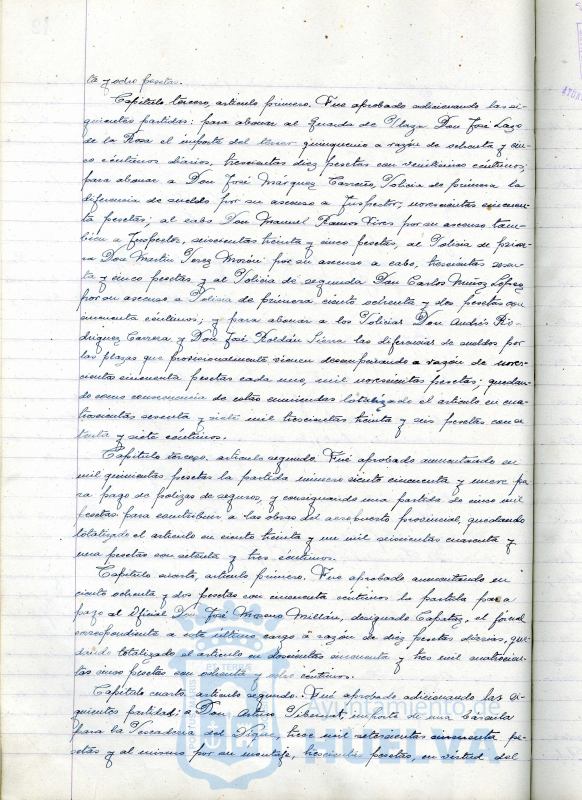 ta y ocho pesetas.
Capítulo tercero, artículo primero. Fué aprobado adicionando las si-
guientes partidas: para abonar al Guarda de Plaza Don José Lazo
de la Rosa el importe del tercer quinquenio a razón de ochenta y cin-
co céntimos diarios, trescientas diez pesetas con veinticinco céntimos;
para abonar a Don José Márquez Carreño, Policía de primera la
diferencia de sueldo por su ascenso a Inspector, novecientas cincuen-
ta pesetas; al cabo Don Manuel Ramos Vives por su ascenso tam-
bién a Inspector, seiscientas treinta y cinco pesetas, al Policía de prime-
ra Don Martín Perez Morón por su ascenso a cabo, trescientas sesen-
ta y cinco pesetas y al Policía de segunda Don Carlos Muñoz López
por su ascenso a Policía de primera ciento ochenta y dos pesetas con
cincuenta céntimos; y para abonar a los Policías Don Andrés Ro-
dríguez Correa y Don José Roldán Sierra las diferencias de sueldos por
las plazas que provisionalmente vienen desempeñando a razón de nove-
cientas cincuenta pesetas cada uno, mil novecientas pesetas; quedan-
do como consecuencia de estas enmiendas totalizado el artículo en cua-
trocientas sesenta y siete mil trescientas treinta y seis pesetas con se-
tenta y siete céntimos.
Capítulo tercero, artículo segundo. Fué aprobado aumentando en
mil quinientas pesetas la partida número ciento cincuenta y nueve pa-
ra pago de polizas de seguros, y consignando una partida de cinco mil
pesetas para contribuir a las obras del aeropuerto provincial, quedando
totalizado el artículo en ciento treinta y un mil seiscientas cuarenta y
una pesetas con setenta y tres céntimos.
Capítulo cuarto, artículo primero. Fué aprobado aumentando en
ciento ochenta y dos pesetas con cincuenta céntimos la partida para
pago al Oficial Don José Moreno Millán, designado Capataz, el jornal
correspondiente a este último cargo a razón de diez pesetas diarias, que-
dando totalizado el artículo en doscientas cincuenta y tres mil cuatrocien-
tas cinco pesetas con ochenta y ocho céntimos.
Capítulo cuarto, artículo segundo. Fué aprobado adicionando las si-
guientes partidas; a Don Arturo Vibernat, importe de una báscula
para la Pescadería del Dique, trece mil setecientas cincuenta pe-
setas y al mismo por su montaje, trescientas pesetas, en virtud del
Ayuntamiento de
HUELVA